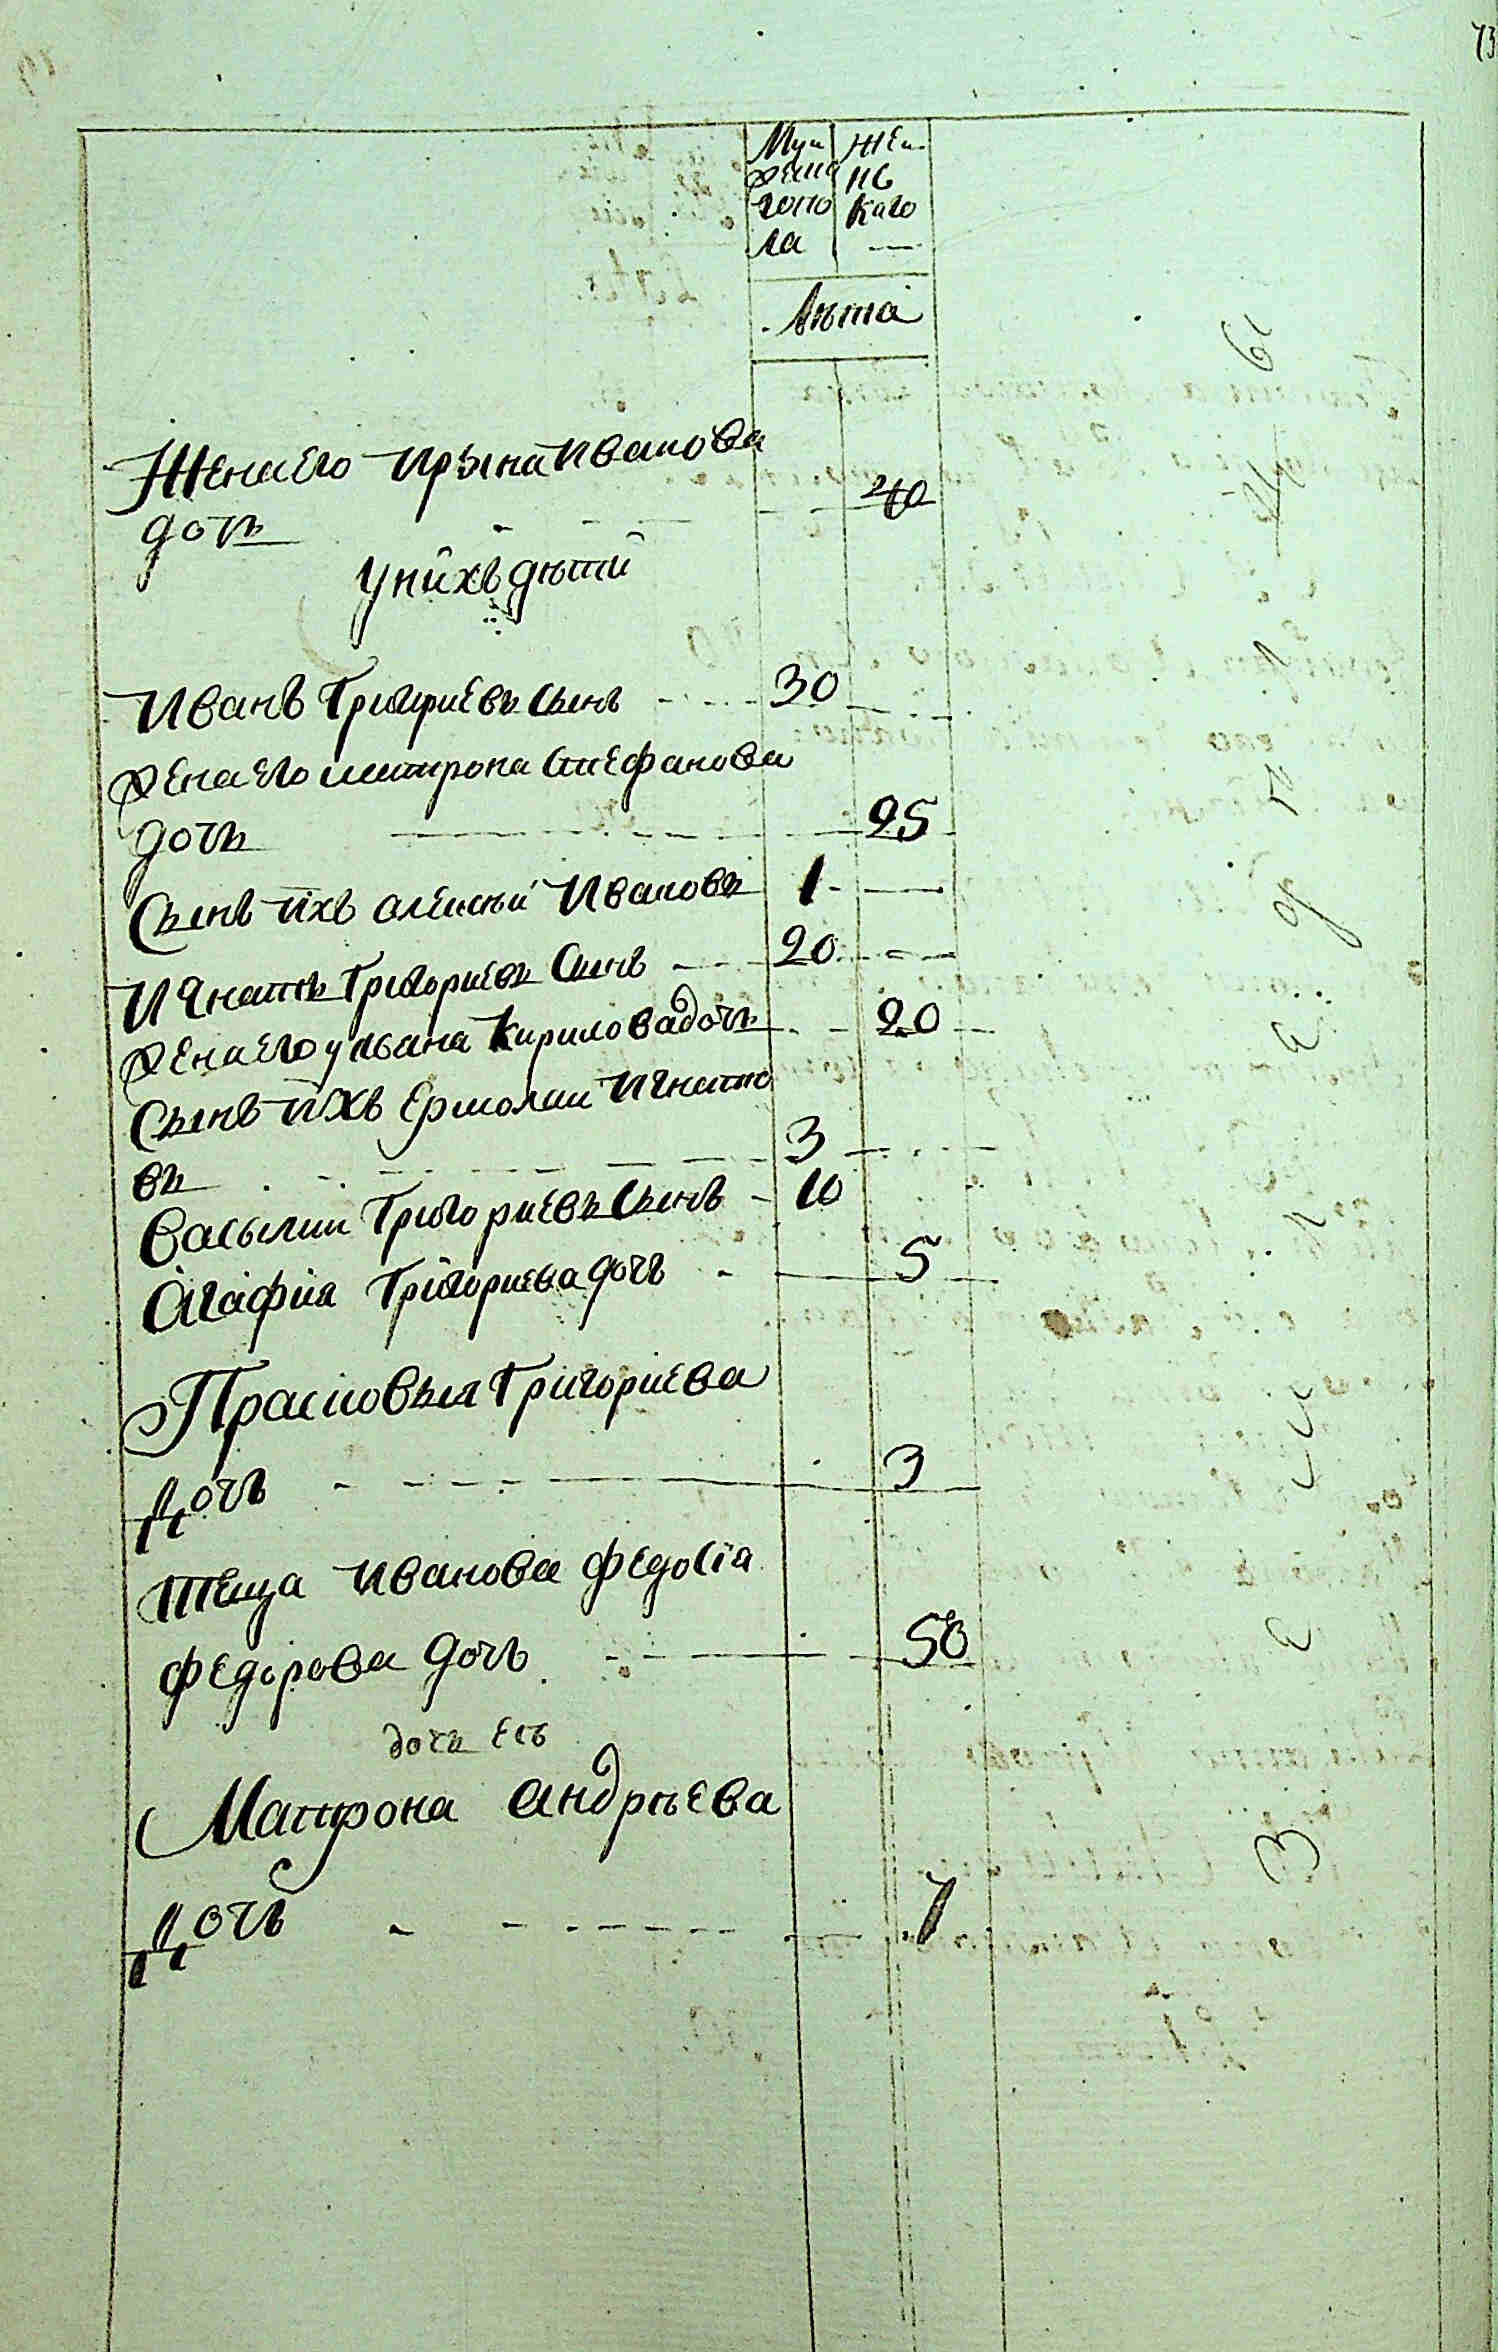 73
Муж Жен
жеска нс
гопо каго
ла
лѣта
Жена его Ирына Иванова
дочь 40
У нихъ дѣти
Иванъ Григориевъ сынъ 30
жена его матрона Стефанова
дочь 25
Сынъ ихъ алексѣй Ивановъ 1
Игнатъ Григориевъ сынъ 20
жена его ульана Кирилова дочь 20
Сынъ ихъ Ермолаи Игнато
въ 3
Василии Григориевъ сынъ 10
Агафия Григориева дочь 5
Прасковья Григориева
дочь 3
теща Иванова федосiя
федорова дочь 50
дочь еѣ
Матрона андрѣева
дочь 7